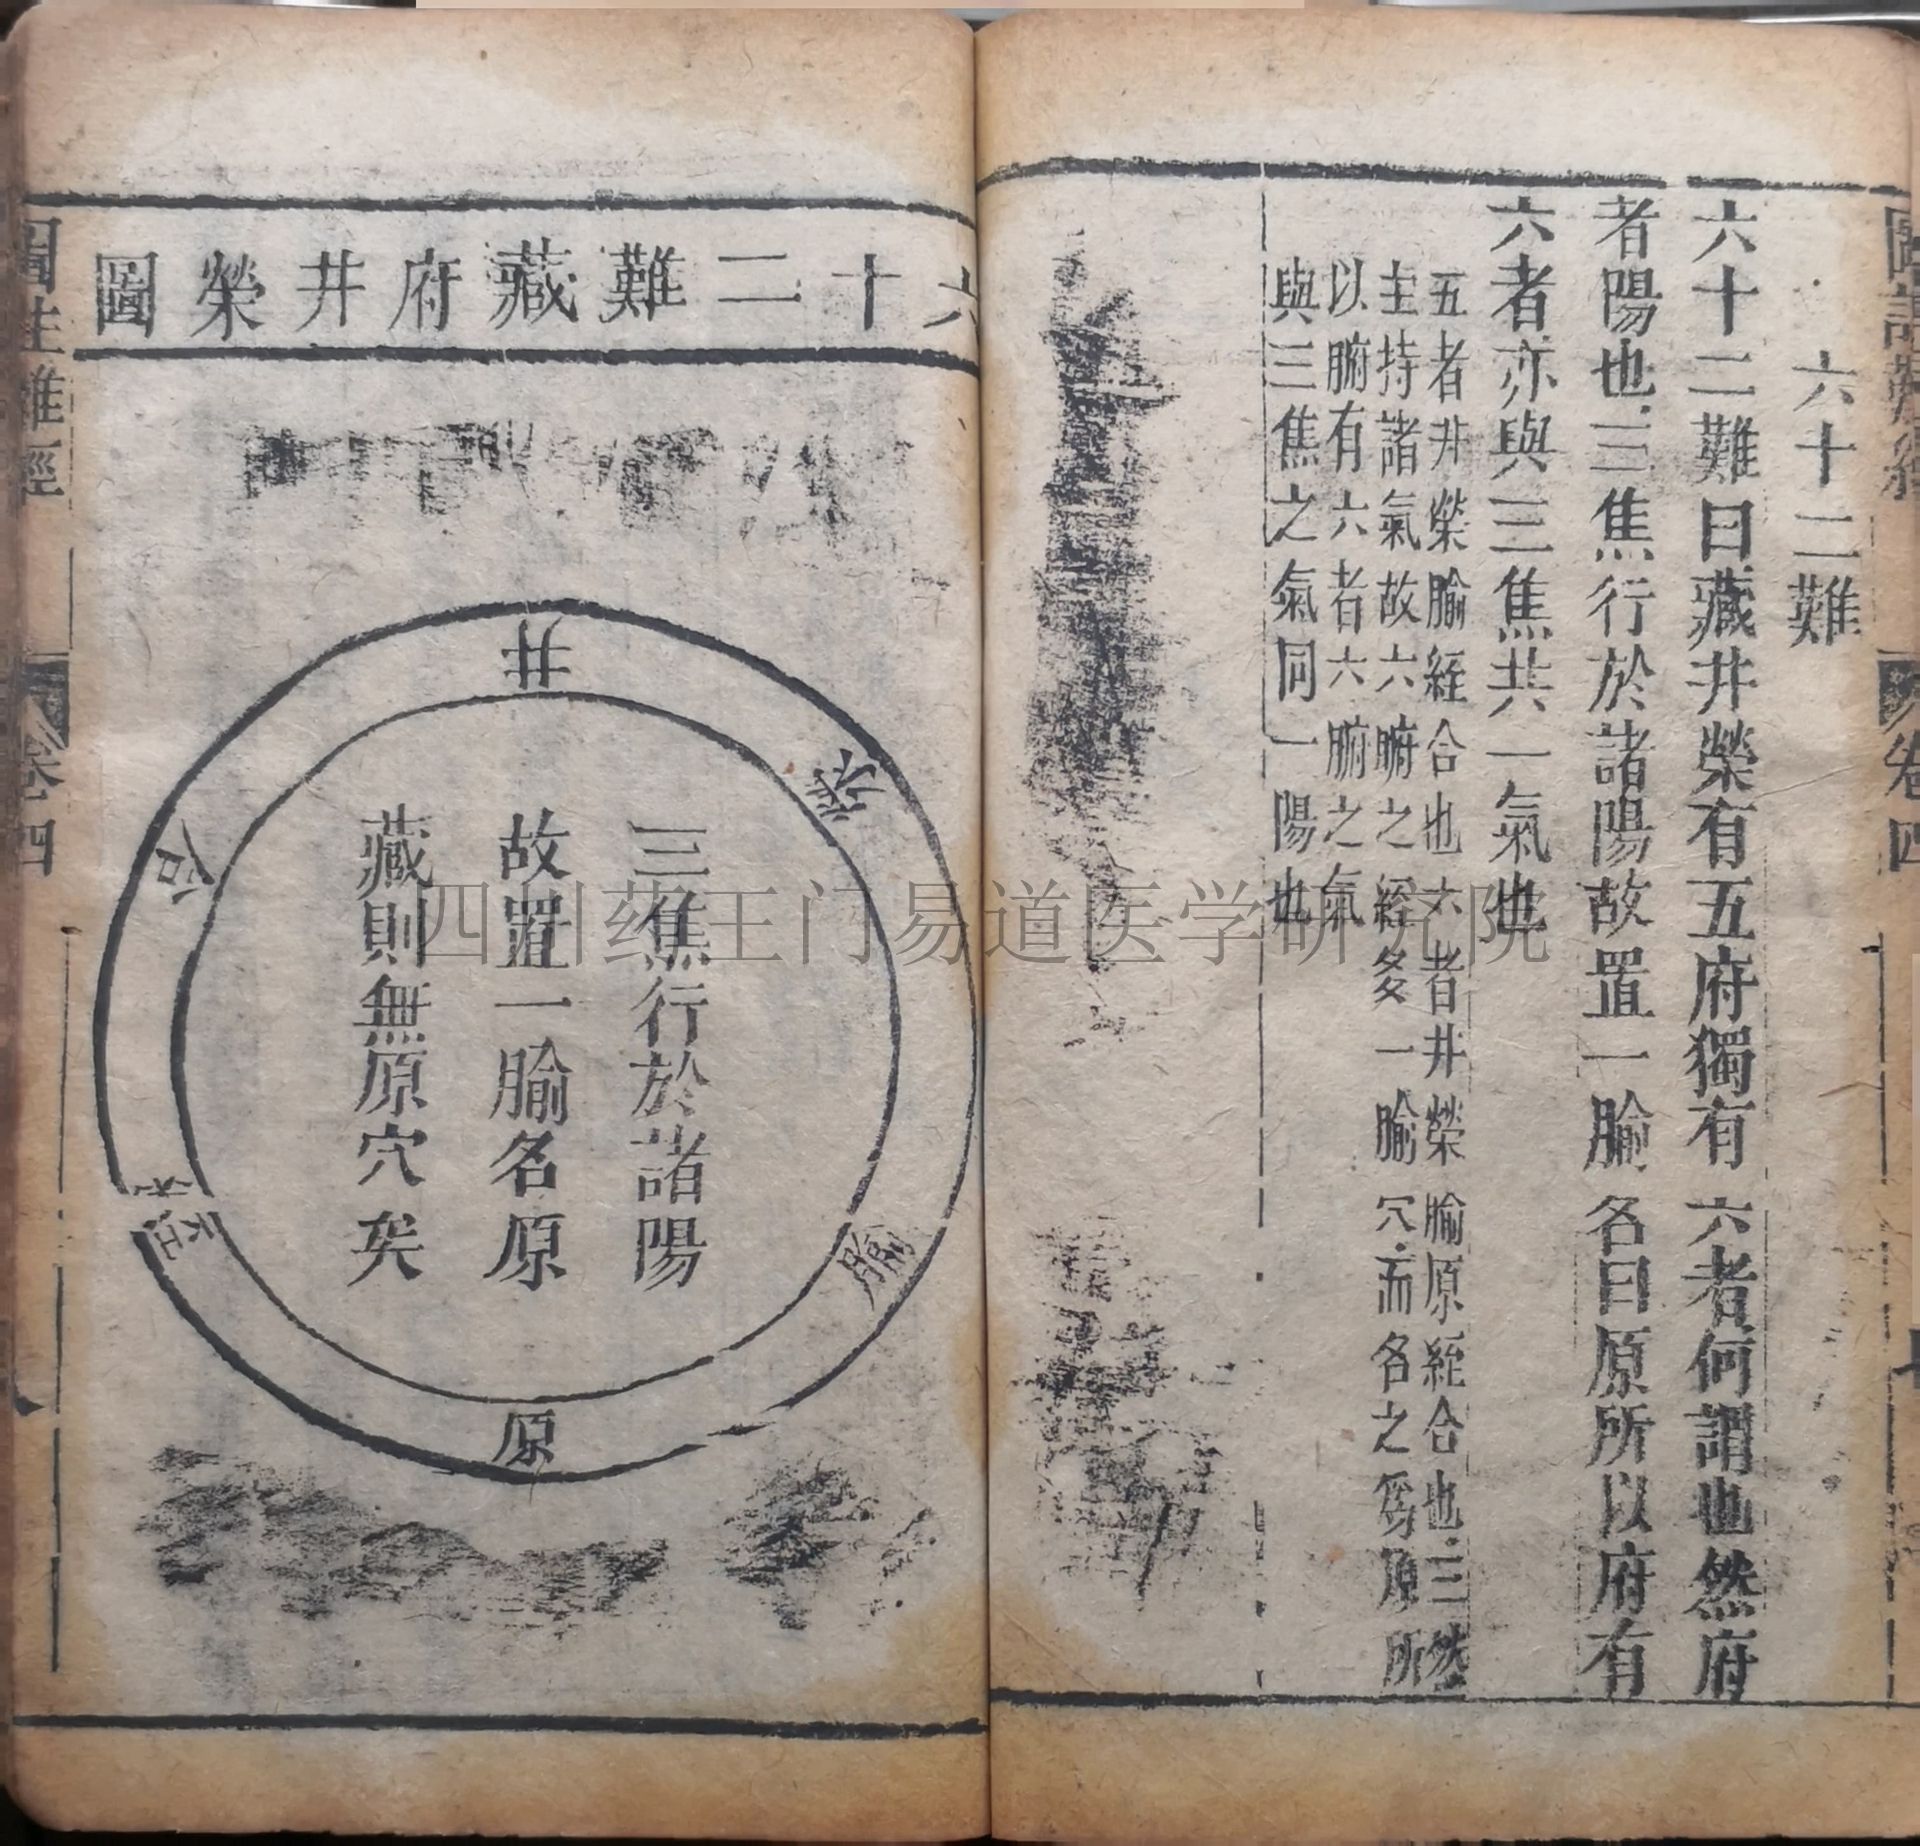 六十二難
六十二難曰藏井榮有五府獨有六者何謂也然府
者陽也三焦行於諸陽故置一腧名曰原所以府有
六者亦與三焦共一氣也
五者井榮腧經合也六者井榮腧原經合也三焦
主持諸氣故六腑之經多一腧穴而名之爲原所
以腑有六者六腑之氣
與三焦之氣同一陽也
卷四
六十二難藏府井榮圖
井
榮
腧
原
經
合
三焦行於諸陽
故置一腧名原
藏則無原穴矣
圖註難經
卷四
四川药王门易道医学研究院